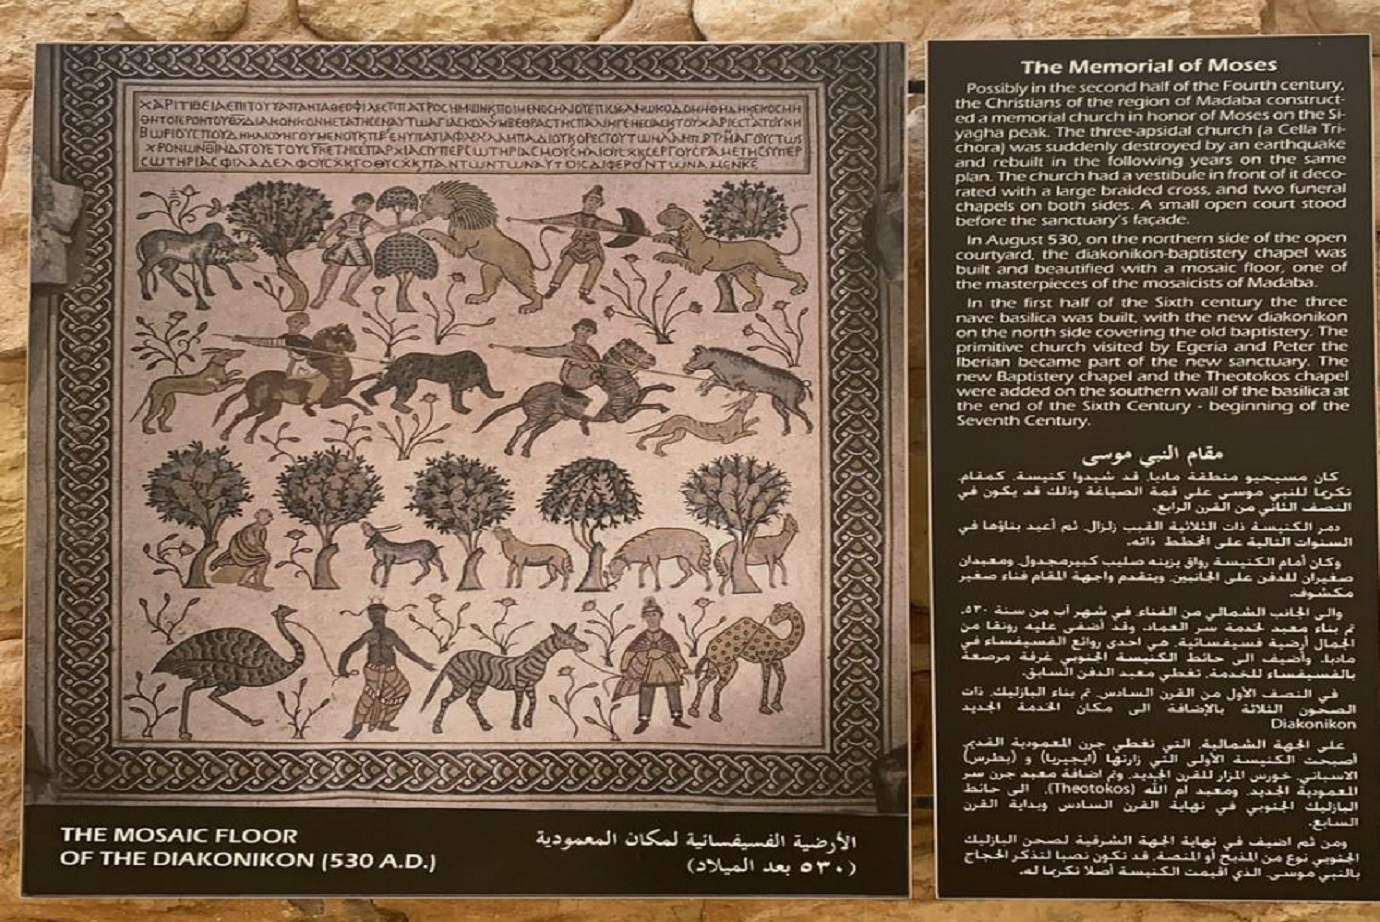 ΧΑΡΙΤΙΘΕΙΑΕΠΙΤΟΥΤΑΠΑΝΤΑΘΕΟΦΙΛΕСΤΠΑΤΡΟС
СѠΤΗΡΙΑС ΦΙΛΑΔΕΛΦΟΥ
THE MOSAIC FLOOR
OF THE DIAKONIKON (530 A.D.)
الأرضية الفسيفسائية لمكان المعمودية
(٥٣٠ بعد الميلاد)
The Memorial of Moses
Possibly in the second half of the Fourth century,
the Christians of the region of Madaba construct-
ed a memorial church in honor of Moses on the Si-
yagha peak. The three-apsidal church (a Cella Tri-
chora) was suddenly destroyed by an earthquake
and rebuilt in the following years on the same
plan. The church had a vestibule in front of it deco-
rated with a large braided cross, and two funeral
chapels on both sides. A small open court stood
before the sanctuary's façade.
In August 530, on the northern side of the open
courtyard, the diakonikon-baptistery chapel was
built and beautified with a mosaic floor, one of
the masterpieces of the mosaicists of Madaba.
In the first half of the Sixth century the three
nave basilica was built, with the new diakonikon
on the north side covering the old baptistery. The
primitive church visited by Egeria and Peter the
Iberian became part of the new sanctuary. The
new Baptistery chapel and the Theotokos chapel
were added on the southern wall of the basilica at
the end of the Sixth Century - beginning of the
Seventh Century.
مقام النبي موسى
كان مسيحيو منطقة مادبا، قد شيدوا كنيسة، كمقام،
تكريما للنبي موسى على قمة الصياغة وذلك قد يكون في
النصف الثاني من القرن الرابع.
دمر الكنيسة ذات الثلاثية القبب زلزال، ثم أعيد بناؤها في
السنوات التالية على المخطط ذاته.
وكان أمام الكنيسة رواق يزينه صليب كبيرمجدول، ومعبدان
صغيران للدفن على الجانبين. ويتقدم واجهة المقام فناء صغير
مكشوف.
والى الجانب الشمالي من الفناء، في شهر آب من سنة ٥٣٠،
تم بناء معبد لخدمة سر العماد، وقد أضفى عليه رونقا من
الجمال أرضية فسيفسائية، هي احدى روائع الفسيفساء في
مادبا. وأضيف الى حائط الكنيسة الجنوبي غرفة مرصعة
بالفسيفساء للخدمة، تغطي معبد الدفن السابق.
في النصف الأول من القرن السادس، تم بناء البازليك، ذات
الصحون الثلاثة بالإضافة الى مكان الخدمة الجديد
Diakonikon
على الجهة الشمالية، التي تغطي جرن المعمودية القديم.
أصبحت الكنيسة الأولى التي زارتها (ايجيريا) و (بطرس)
الاسباني، خورس المزار للقرن الجديد. وتم اضافة معبد جرن سر
المعمودية الجديد، ومعبد ام الله (Theotokos)، الى حائط
البازليك الجنوبي في نهاية القرن السادس وبداية القرن
السابع.
ومن ثم اضيف في نهاية الجهة الشرقية لصحن البازليك
الجنوبي نوع من المذبح أو المنصة، قد تكون نصبا لتذكر الحجاج
بالنبي موسى، الذي اقيمت الكنيسة أصلا تكريما له.